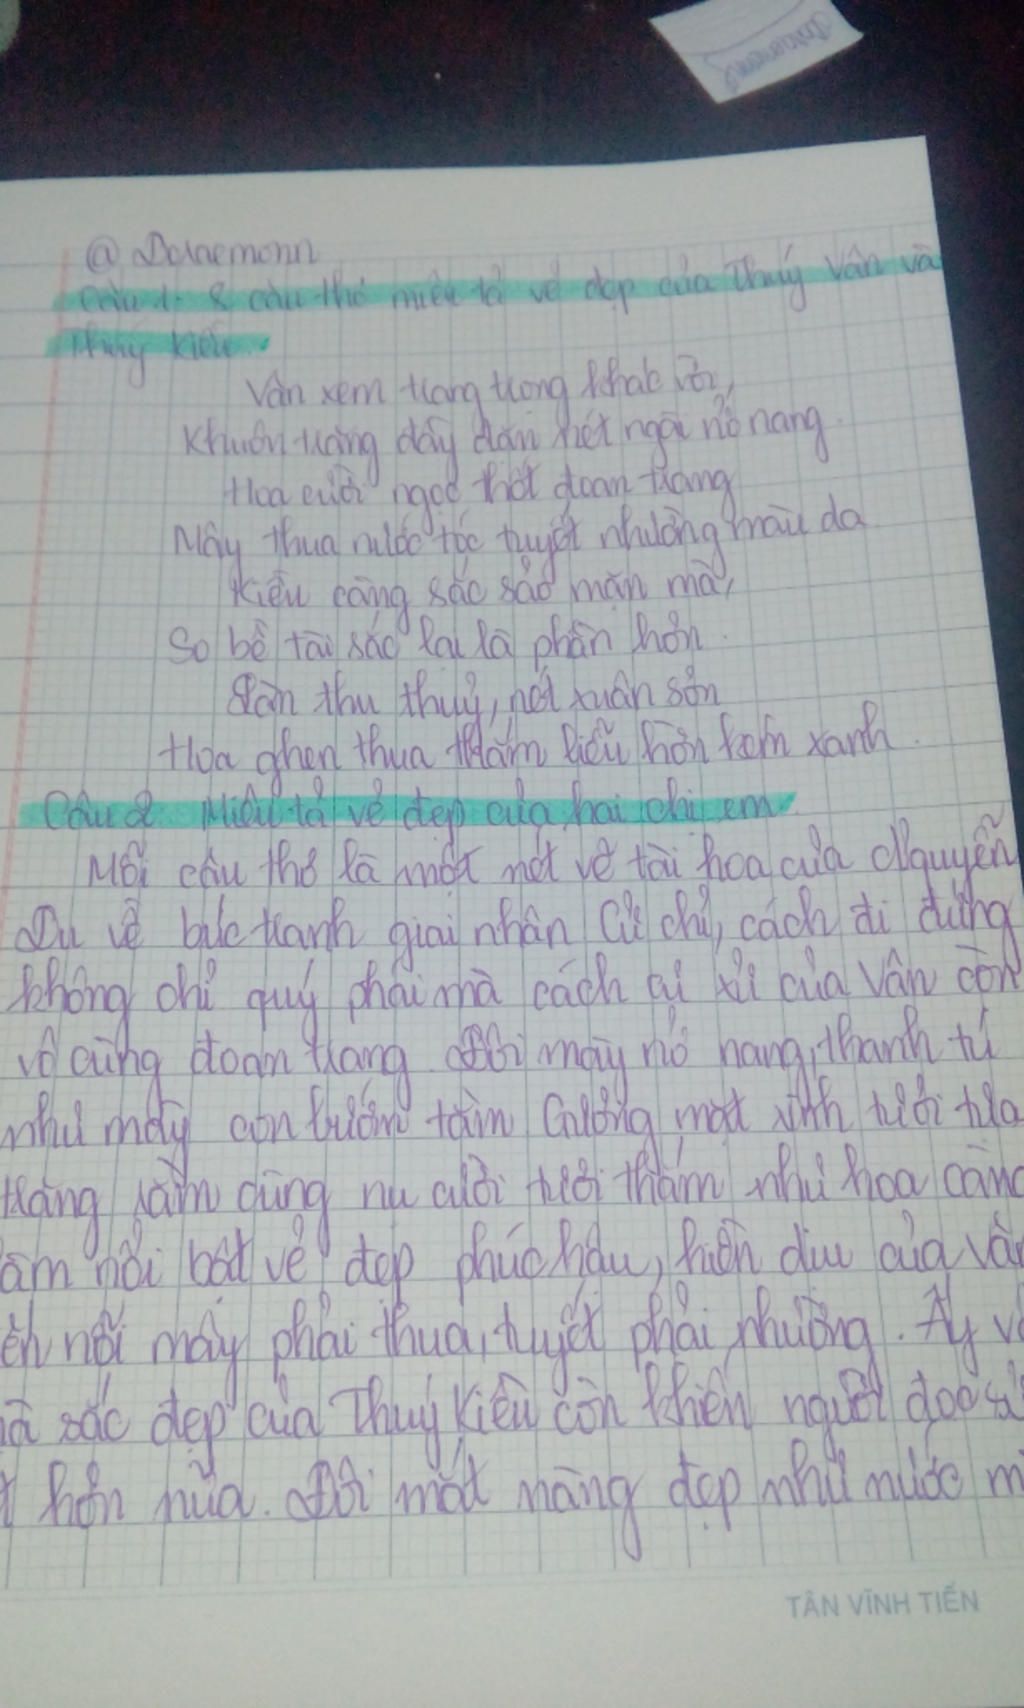 @ Doraemonn
Câu 1. 8 câu thơ miêu tả vẻ đẹp của Thúy Vân và
Thúy Kiều.
Vân xem trang trọng khác vời,
Khuôn trăng đầy đặn nét ngài nở nang.
Hoa cười ngọc thốt đoan trang
Mây thua nước tóc tuyết nhường màu da
Kiều càng sắc sảo mặn mà,
So bề tài sắc lại là phần hơn.
Làn thu thuỷ, nét xuân sơn
Hoa ghen thua thắm liễu hờn kém xanh.
Câu 2. Miêu tả vẻ đẹp của hai chị em
Mỗi câu thơ là một nét vẽ tài hoa của Nguyễn
Du về bức tranh giai nhân. Cử chỉ, cách đi đứng
không chỉ quý phái mà cách ứ xử của Vân còn
vô cùng đoan trang. Đôi mày nở nang, thanh tú
như mày con bướm tằm. Gương mặt xinh tươi tựa
trăng rằm cùng nụ cười tươi thắm như hoa càng
àm nổi bật vẻ đẹp phúc hậu, hiền dịu của Vân
ến nỗi mây phải thua, tuyết phải nhường. Ấy v
à sắc đẹp của Thuý Kiều còn khiến người đọc s
hơn nữa. Đôi mắt nàng đẹp như nước m
TÂN VĨNH TIẾN